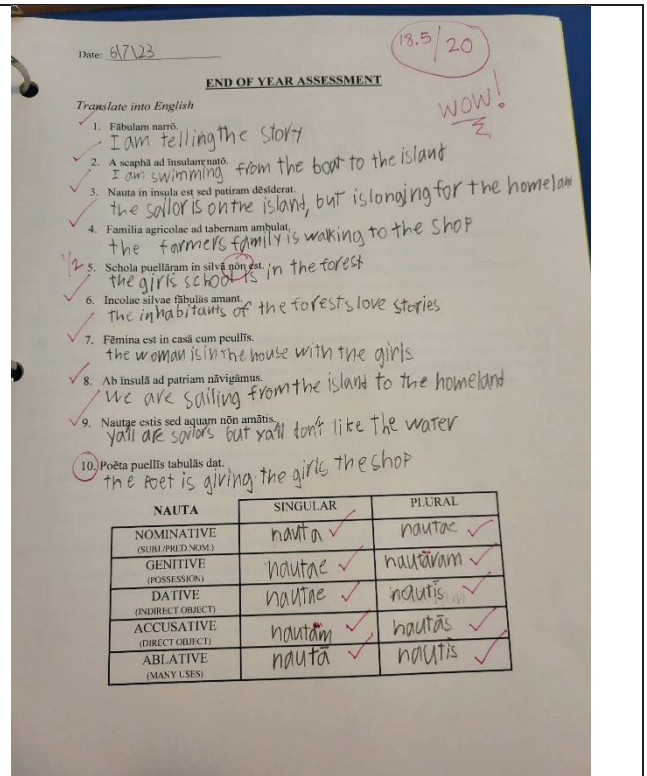 Date: 6/7/23
18.5/20
END OF YEAR ASSESSMENT
WOW!
Translate into English
1. Fābulam narrō.
I am telling the story
2. A scaphā ad īnsulam natō.
I am swimming from the boat to the island
3. Nauta in insula est sed patiram dēsīderat.
the sailor is on the island, but is longing for the homelan
4. Familia agricolae ad tabernam ambulat.
the farmers family is walking to the shop
1/2 5. Schola puellāram in silvā nōn est.
the girls school is in the forest
6. Incolae silvae fābulās amant.
the inhabitants of the forests love stories
7. Fēmina est in casā cum peullīs.
the woman is in the house with the girls
8. Ab īnsulā ad patriam nāvigāmus.
we are sailing from the island to the homeland
9. Nautae estis sed aquam nōn amātis.
yall are sailors but yall don't like the water
10. Poēta puellīs tabulās dat.
the poet is giving the girls the shop
NAUTA SINGULAR PLURAL
NOMINATIVE nauta nautae
(SUBJ./PRED.NOM.)
GENITIVE nautae nautāram
(POSSESSION)
DATIVE nautae nautīs
(INDIRECT OBJECT)
ACCUSATIVE nautam nautās
(DIRECT OBJECT)
ABLATIVE nautā nautīs
(MANY USES)